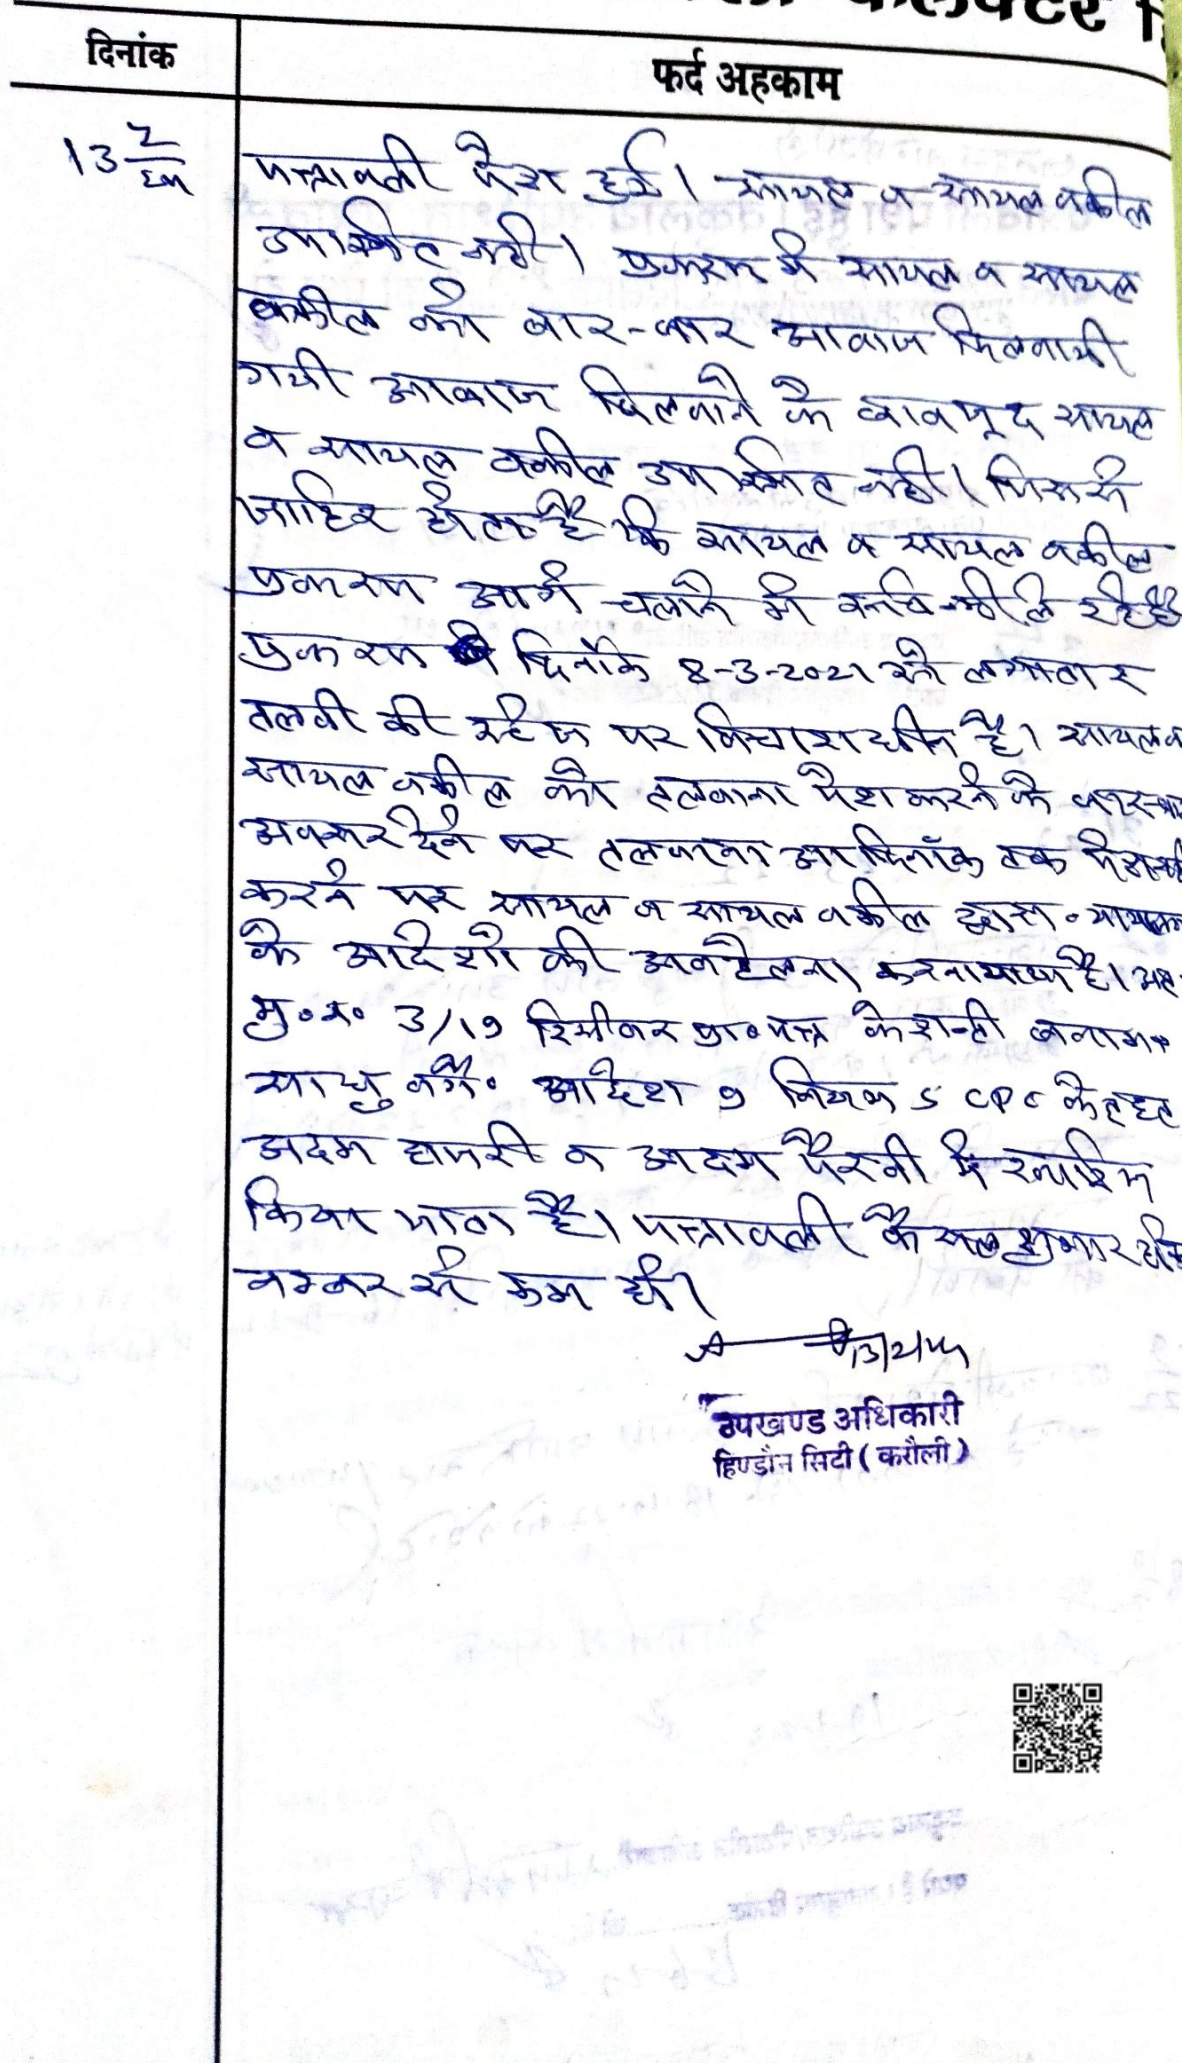 कलक्टर
दिनांक
फर्द अहकाम
13/2
पत्रावली पेश हुई। सायल व सायल वकील
उपस्थित नही। प्रकरण मे सायल व सायल
वकील को बार-बार आवाज दिलवायी
गयी आवाज दिलवाने के बावजूद सायल
व सायल वकील उपस्थित नही। जिससे
जाहिर होता है कि सायल व सायल वकील
प्रकरण आगे चलाने मे रूचि नही ले रहे है
प्रकरण दिनांक 8-3-2021 से लगातार
तलवी की स्टेज पर विचाराधीन है। सायल व
सायल वकील को तलवाना पेश करने के
अवसर देने पर तलवाना आ दिनाँक तक
करने पर सायल व सायल वकील द्वारा
के आदेशो की अवहेलना करना है।
मु०न० 3/19 रिसीवर प्रा०पत्र बनाम
आदेश 9 नियम 5 CPC के तहत
अदम हाजरी व अदम पैरवी मे खारिज
किया जाता है। पत्रावली फैसल शुमार
नम्बर से कम हो।
उपखण्ड अधिकारी
हिण्डौन सिटी (करौली)